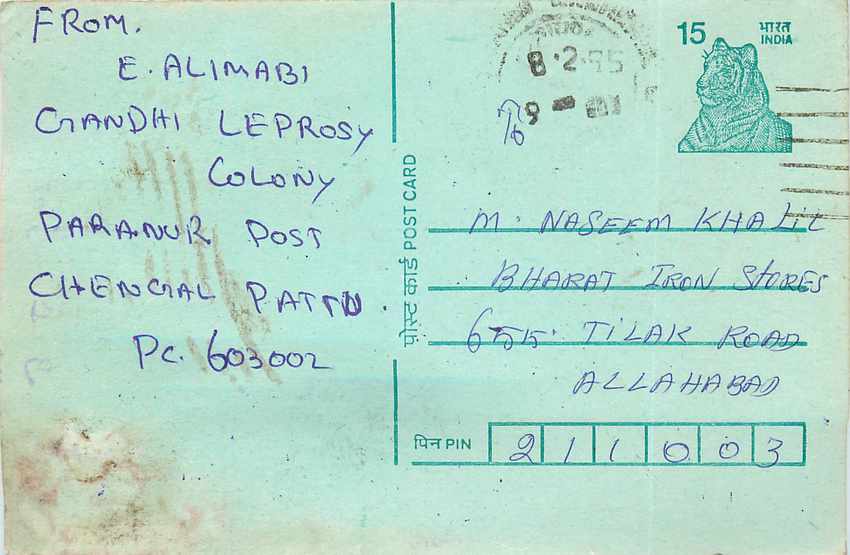 FROM.
E. ALIMABI
GANDHI LEPROSY
COLONY
PARANUR POST
CHENGAL PATTU
PC. 603002
8.2.95
15 भारत
INDIA
पोस्ट कार्ड POST CARD
M. NASEEM KHALIL
BHARAT IRON STORES
655. TILAK ROAD
ALLAHABAD
पिन PIN 211003